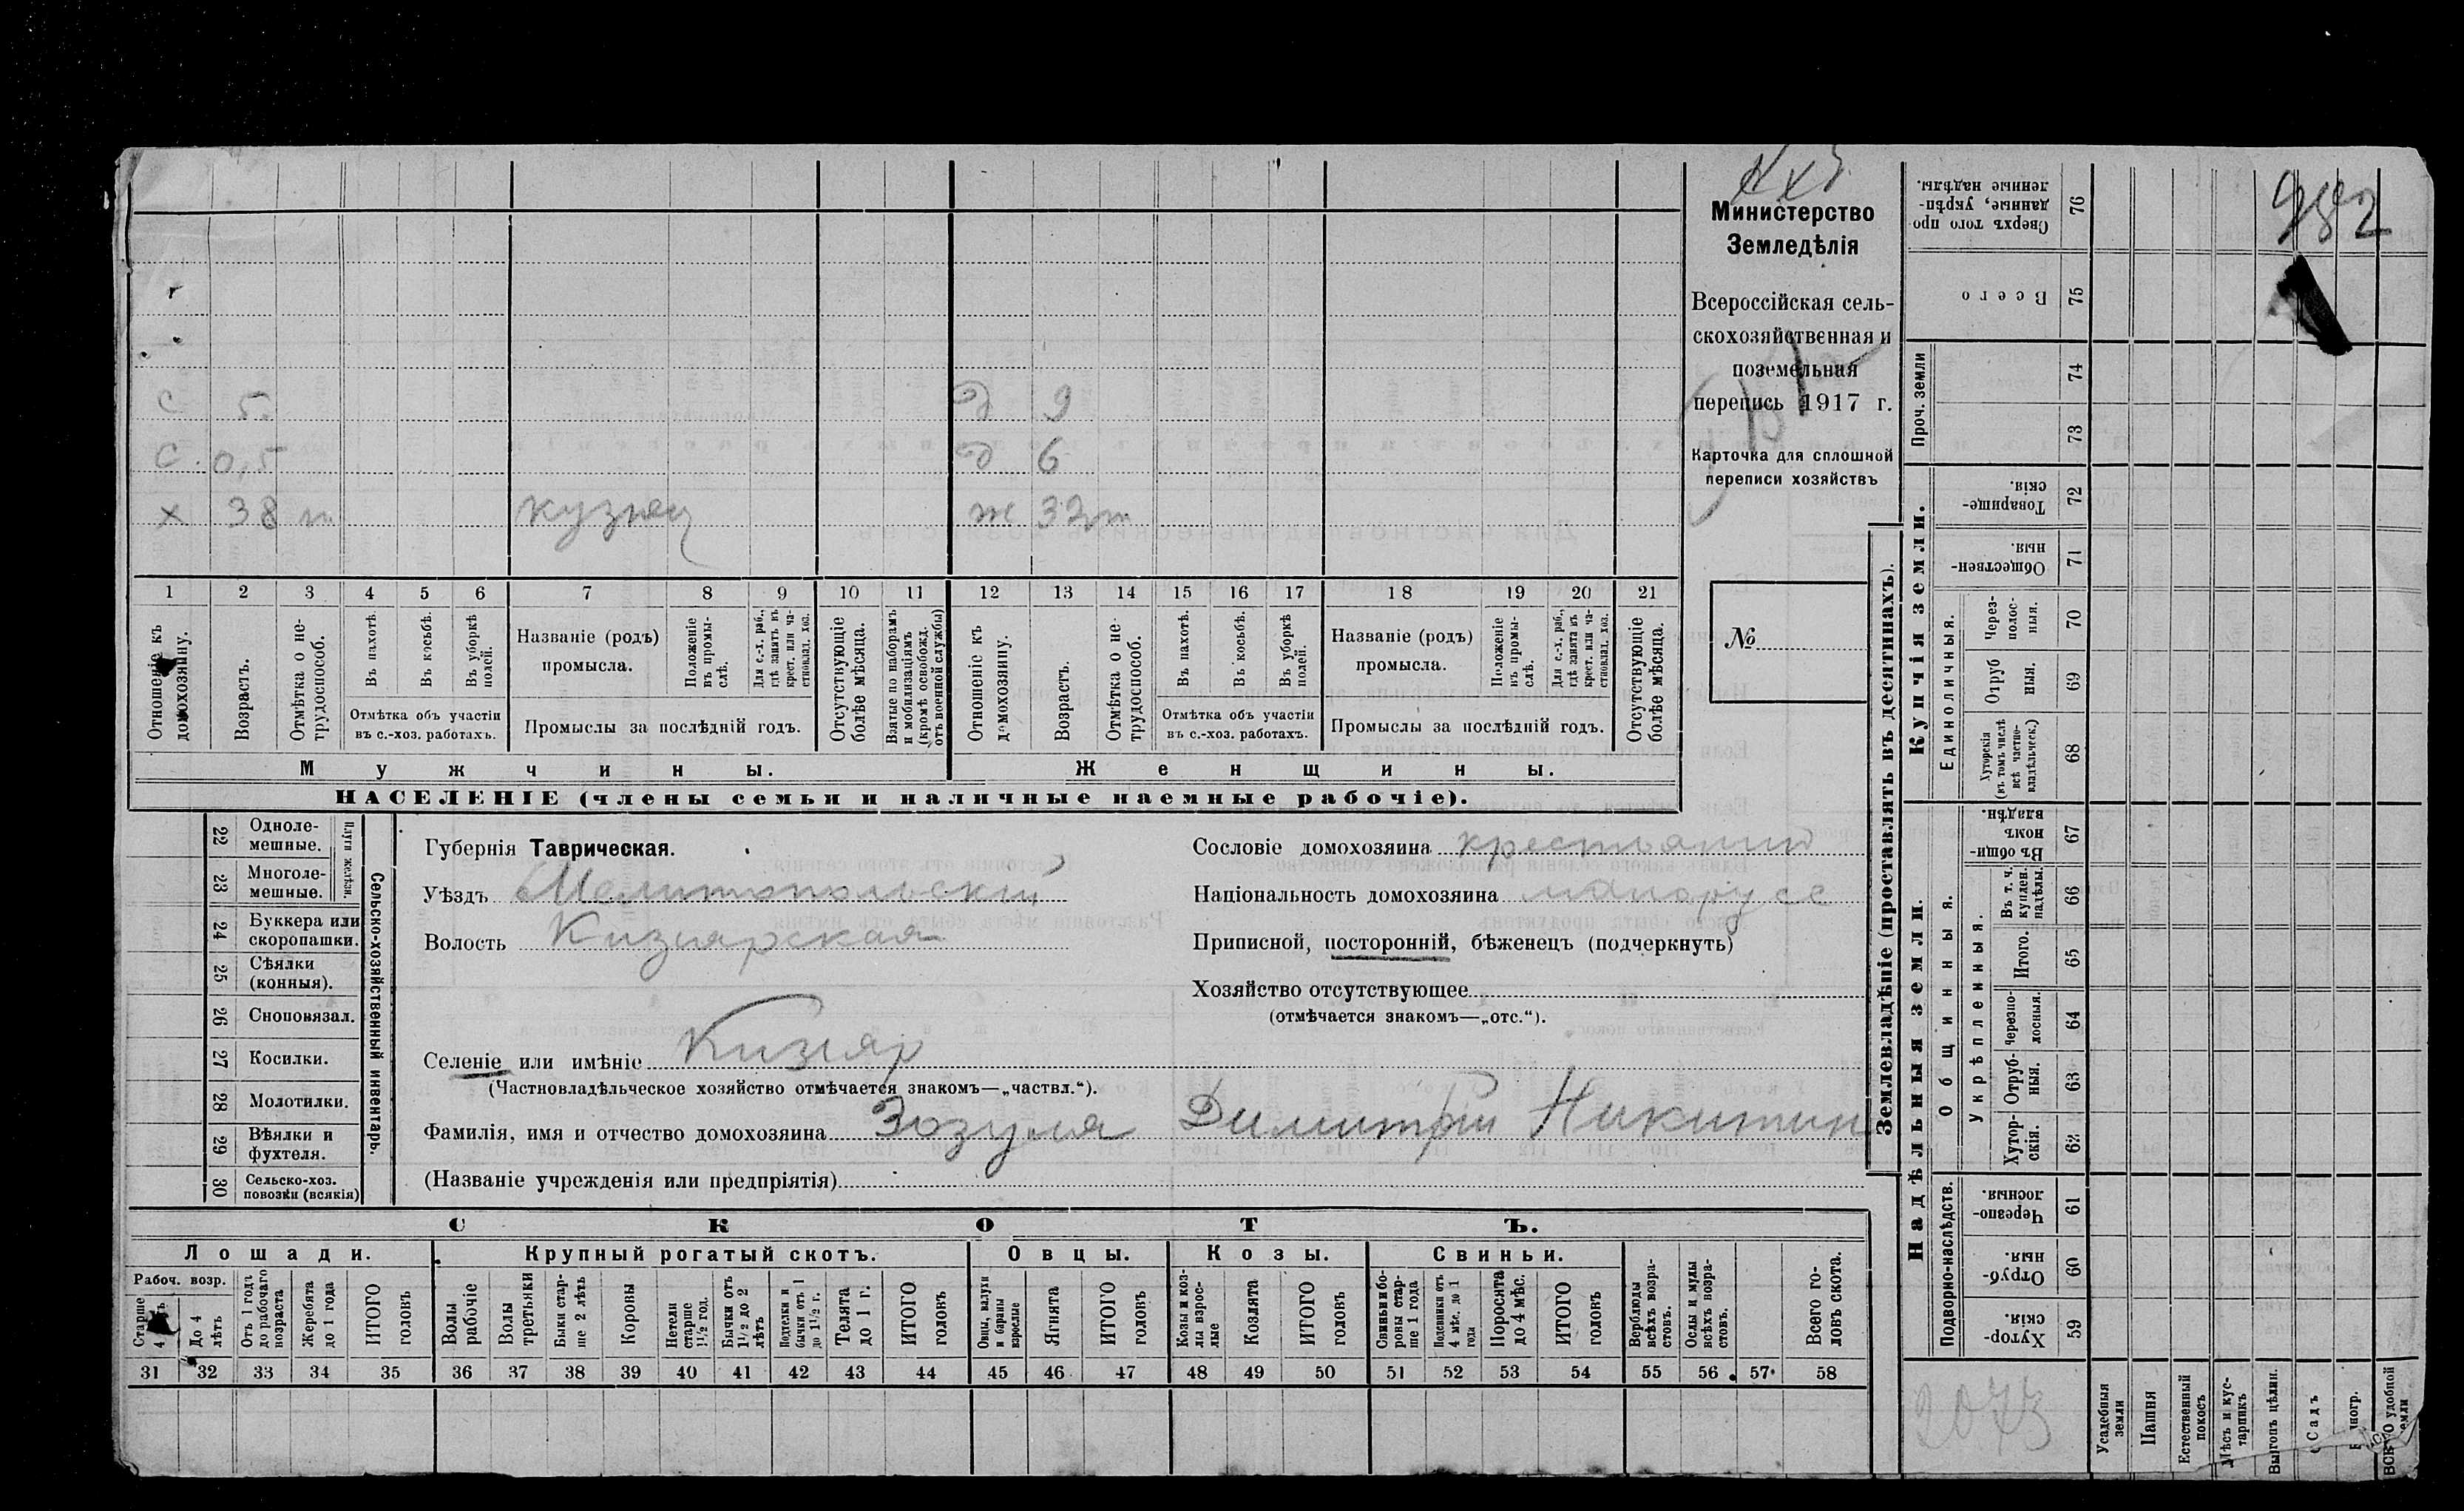 982
Министерство
Земледѣлія
Всероссійская сель-
скохозяйственная и
поземельная
перепись 1917 г.
Карточка для сплошной
переписи хозяйствъ
№
С 5. д 9
С. 0,5 д 6
х 38 кузнец ж 32
1 2 3 4 5 6 7 8 9 10 11 12 13 14 15 16 17 18 19 20 21
Отношеніе къ домохозяину.
Возрастъ.
Отмѣтка о не-трудоспособ.
Въ пахотѣ.
Въ косьбѣ.
Въ уборкѣ полей.
Отмѣтка объ участіи
въ с.-хоз. работахъ.
Названіе (родъ)
промысла.
Положеніе въ промы-слѣ.
Для с.-х. раб., гдѣ занятъ въ крест. или ча-стновлад. хоз.
Промыслы за послѣдній годъ.
Отсутствующіе болѣе мѣсяца.
Взятые по наборамъ и мобилизаціямъ (кромѣ освобожд. отъ военной службы)
Отношеніе къ домохозяину.
Возрастъ.
Отмѣтка о не-трудоспособ.
Въ пахотѣ.
Въ косьбѣ.
Въ уборкѣ полей.
Отмѣтка объ участіи
въ с.-хоз. работахъ.
Названіе (родъ)
промысла.
Положеніе въ промы-слѣ.
Для с.-х. раб., гдѣ занята въ крест. или ча-стновлад. хоз.
Промыслы за послѣдній годъ.
Отсутствующіе болѣе мѣсяца.
Мужчины.
Женщины.
НАСЕЛЕНІЕ (члены семьи и наличные наемные рабочіе).
22 Одноле-мешные.
23 Многоле-мешные.
Плуги желѣзн.
24 Буккера или скоропашки.
25 Сѣялки (конныя).
26 Сноповязал.
27 Косилки.
28 Молотилки.
29 Вѣялки и фухтеля.
30 Сельско-хоз. повозки (всякія)
Сельско-хозяйственный инвентарь.
Губернія Таврическая.
Уѣздъ Мелитопольскій
Волость Кизиярская
Селеніе или имѣніе Кизияр
(Частновладѣльческое хозяйство отмѣчается знакомъ—„частвл.“).
Фамилія, имя и отчество домохозяина Зозуля Димитрий Никитин
(Названіе учрежденія или предпріятія)
Сословіе домохозяина крестьянин
Національность домохозяина малорусс
Приписной, посторонній, бѣженецъ (подчеркнуть)
Хозяйство отсутствующее
(отмѣчается знакомъ—„отс.“).
СКОТЪ.
Лошади.
Крупный рогатый скотъ.
Овцы.
Козы.
Свиньи.
Рабоч. возр.
Старше 4 лѣтъ
До 4 лѣтъ
Отъ 1 годъ до рабочаго возраста
Жеребята до 1 года
ИТОГО головъ
Волы рабочіе
Волы третьяки
Быки стар-ше 2 лѣтъ
Коровы
Нетели старше 1½ год.
Бычки отъ 1½ до 2 лѣтъ
Подтелки и бычки отъ 1 до 1½ г.
Телята до 1 г.
ИТОГО головъ
Овцы, валухи и бараны взрослые
Ягнята
ИТОГО головъ
Козы и коз-лы взрос-лые
Козлята
ИТОГО головъ
Свиньи и бо-ровы стар-ше 1 года
Подсвинки отъ 4 мѣс. до 1 года
Поросята до 4 мѣс.
ИТОГО головъ
Верблюды всѣхъ возра-стовъ.
Ослы и мулы всѣхъ возра-стовъ.
Всего го-ловъ скота.
31 32 33 34 35 36 37 38 39 40 41 42 43 44 45 46 47 48 49 50 51 52 53 54 55 56 57 58
Землевладѣніе (проставлять въ десятинахъ).
Купчія земли.
Надѣльныя земли.
Сверхъ того про-данные, укрѣп-ленные надѣлы. 76
Всего 75
Проч. земли 74
73
Товарище-скія. 72
Обществен-ныя. 71
Единоличныя.
Через-полос-ныя. 70
Отруб ныя. 69
Хуторскія (въ томъ числѣ всѣ частно-владѣльческ.) 68
Общинныя.
Въ общи-номъ владѣн. 67
Укрѣпленныя.
Въ т. ч. куплен. надѣлы. 66
Итого. 65
Черезпо-лосныя. 64
Отруб-ныя. 63
Хутор-скія. 62
Подворно-наслѣдств.
Черезпо-лосныя. 61
Отруб-ныя. 60
Хутор-скія. 59
2073
Усадебныя земли
Пашня
Естественный покосъ
Лѣсъ и кус-тарникъ
Выгонъ цѣлин.
Садъ
ВСЕГО удобной земли